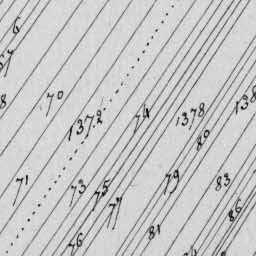 6
70
1372
74
1378
80
71
73
75
77
79
83
86
81
76